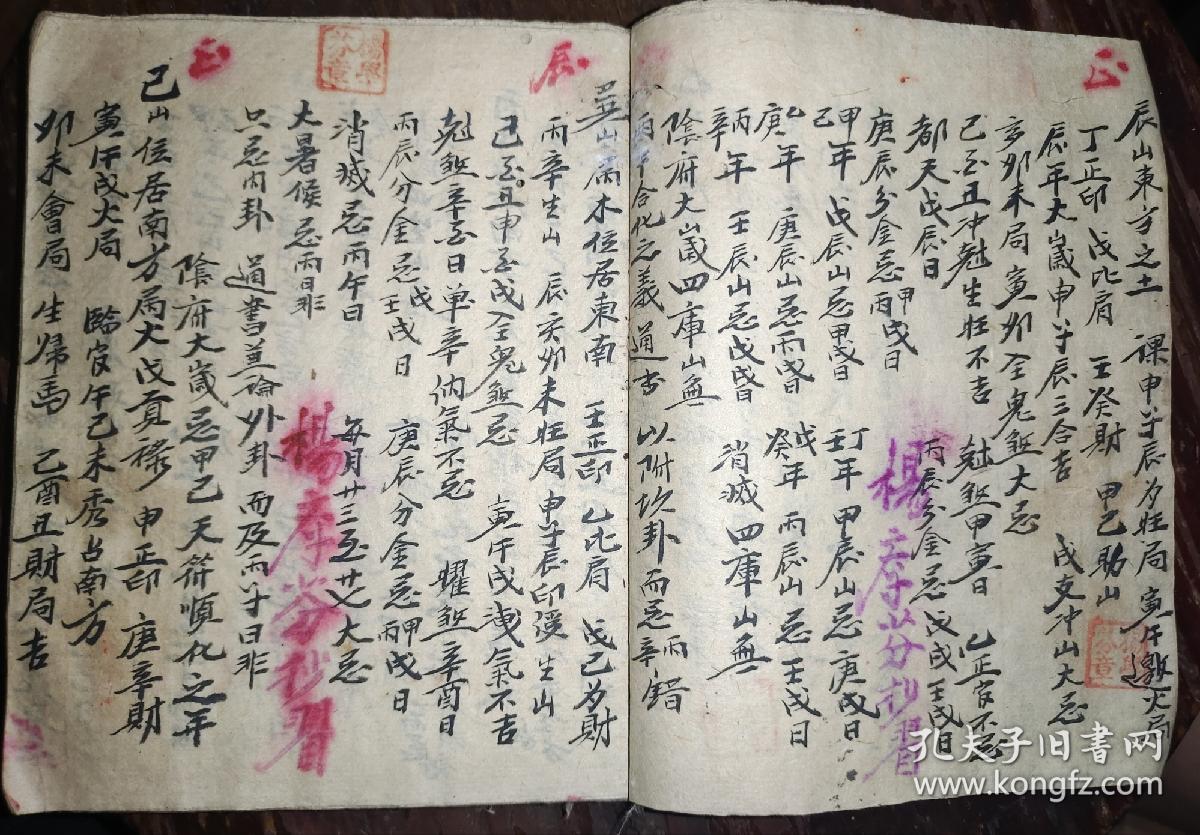 辰
辰山東方之土 課申子辰为旺局 寅午邀火局
丁正印 戊比肩 壬癸財 甲己助山
辰年大歲申子辰三合吉 戌支冲山大忌
亥卯未局寅卯全鬼煞大忌
己酉丑冲尅生旺不吉 尅煞甲寅日 乙正官不忌
都天戊辰日 丙辰分金忌戊戌壬戌日
庚辰分金忌丙戌甲戌日
甲己年 戊辰山忌甲戌日 丁壬年 甲辰山忌庚戌日
乙庚年 庚辰山忌丙戌日 戊癸年 丙辰山忌壬戌日
丙辛年 壬辰山忌戊戌日 消滅四庫山無
陰府大歲四庫山無
兩干合化之義 通书以附坎卦而忌丙辛錯
巽山属木位居東南 壬正印 乙比肩 戊己为財
丙辛生山 辰亥卯未旺局 申子辰印绶生山
己酉丑申酉戌全鬼煞忌 寅午戌洩氣不吉
尅煞辛酉日单辛納氣不忌 曜煞辛酉日
丙辰分金忌壬戌戊日 庚辰分金忌甲戌丙日
消滅忌丙午日 每月廿三至廿七大忌
大暑候忌丙日非
只忌内卦 通書並論外卦而及丙子日非
陰府大歲忌甲己天符順化之年
巳
巳山位居南方局大戊貢祿 申正印 庚辛財
寅午戌火局 臨官午巳未秀占南方
卯未會局 生歸馬 乙酉丑財局吉
楊孝芬抄習
楊孝芬抄習
孔夫子旧书网
www.kongfz.com